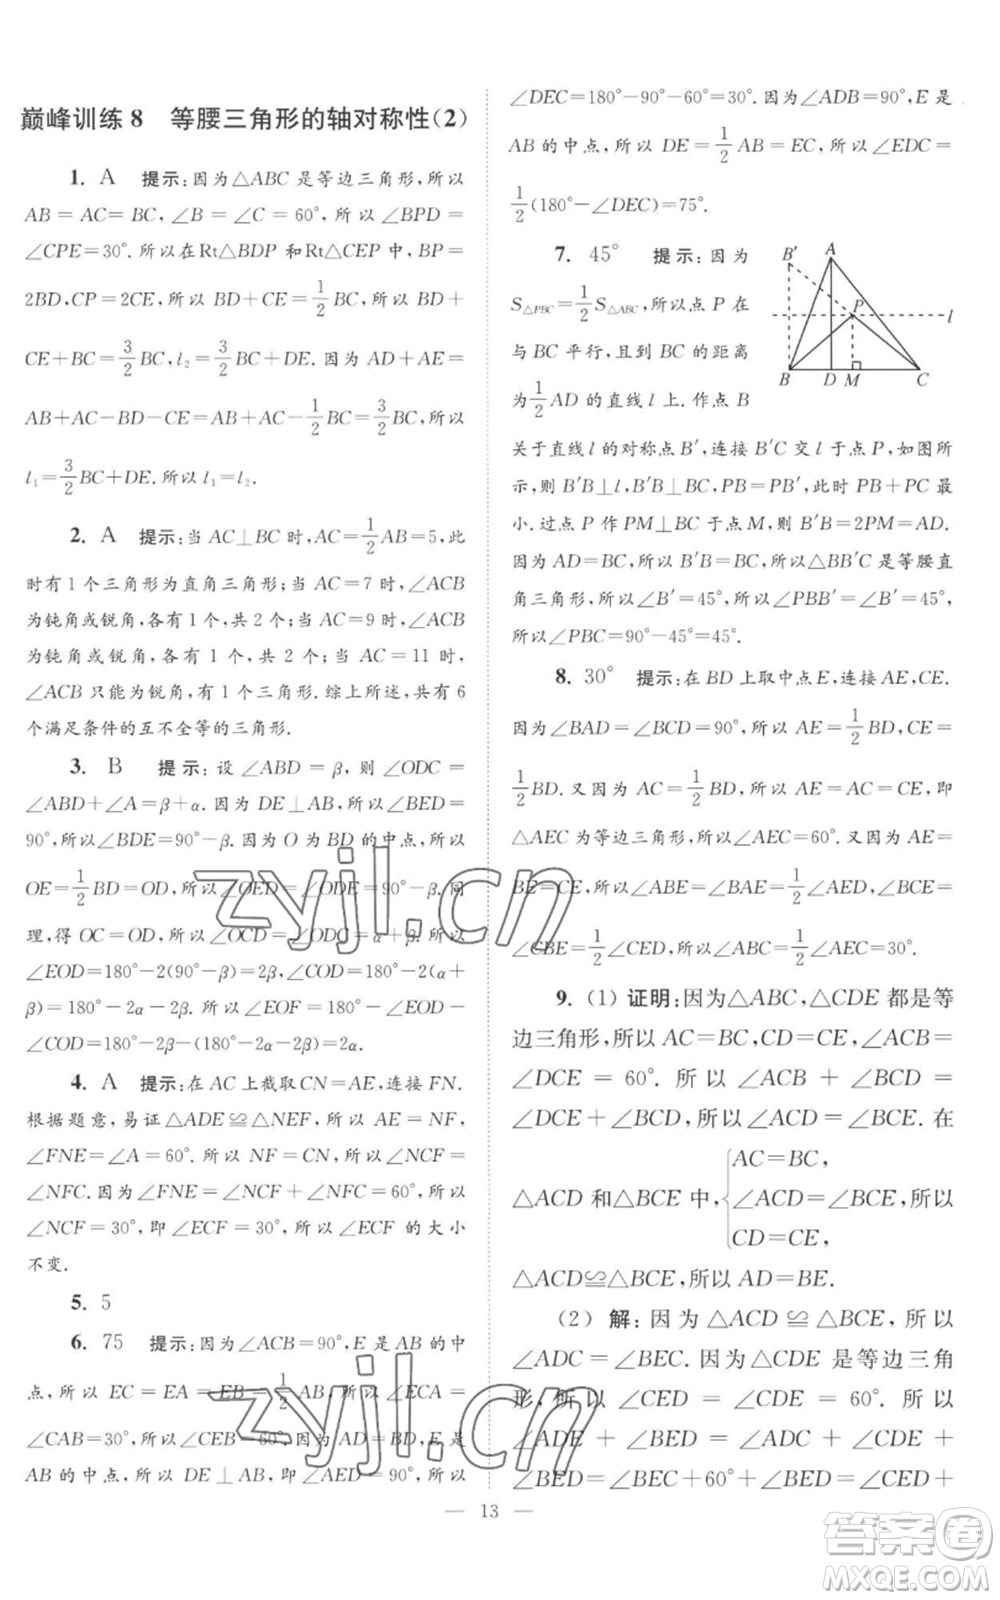 巅峰训练8 等腰三角形的轴对称性(2)
1. A 提示:因为△ABC 是等边三角形,所以
AB=AC=BC,∠B=∠C=60°,所以∠BPD=
∠CPE=30°.所以Rt△BDP 和Rt△CEP 中,BP=
2BD,CP=2CE,所以 BD+CE=1/2BC,所以 BD+
CE+BC=3/2BC,l₂=3/2BC+DE.因为 AD+AE=
AB+AC-BD-CE=AB+AC-1/2BC=3/2BC,所以
l₁=3/2BC+DE.所以l₁=l₂.
2. A 提示:当 AC⊥BC 时,AC=1/2AB=5,此
时有1个三角形为直角三角形;当 AC=7 时,∠ACB
为钝角或锐角,有1个,共2个;当 AC=9 时,∠ACB
为钝角或锐角,有1个,共2个;当 AC=11 时,
∠ACB 只能为锐角,有1个三角形.综上所述,共有6
个满足条件的互不全等的三角形.
3. B 提示:设∠ABD=β,则∠ODC=
∠ABD+∠A=β+α.因为 DE⊥AB,所以∠BED=
90°,所以∠BDE=90°-β.因为 O 为 BD 的中点,所以
OE=1/2BD=OD,所以∠OED=∠ODE=90°-β.同
理,得 OC=OD,所以∠OCD=∠ODC=α+β.所以
∠EOD=180°-2(90°-β)=2β,∠COD=180°-2(α+
β)=180°-2α-2β.所以∠EOF=180°-∠EOD-
∠COD=180°-2β-(180°-2α-2β)=2α.
4. A 提示:在 AC 上截取 CN=AE,连接 FN.
根据题意,易证△ADE≌△NEF,所以 AE=NF,
∠FNE=∠A=60°.所以 NF=CN,所以∠NCF=
∠NFC.因为∠FNE=∠NCF+∠NFC=60°,所以
∠NCF=30°,即∠ECF=30°,所以∠ECF 的大小
不变.
5. 5
6. 75 提示:因为∠ACB=90°,E 是 AB 的中
点,所以 EC=EA=EB=1/2AB,所以∠ECA=
∠CAB=30°,所以∠CEB=60°.因为 AD=BD,E 是
AB 的中点,所以 DE⊥AB,即∠AED=90°,所以
∠DEC=180°-90°-60°=30°.因为∠ADB=90°,E 是
AB 的中点,所以 DE=1/2AB=EC,所以∠EDC=
1/2(180°-∠DEC)=75°.
7. 45° 提示:因为
S△PBC=1/2S△ABC,所以点 P 在
与 BC 平行,且到 BC 的距离
为1/2AD 的直线 l 上.作点 B
B′ A P l B D M C
关于直线 l 的对称点 B′,连接 B′C 交 l 于点 P,如图所
示,则 B′B⊥l,B′B⊥BC,PB=PB′,此时 PB+PC 最
小.过点 P 作 PM⊥BC 于点 M,则 B′B=2PM=AD.
因为 AD=BC,所以 B′B=BC,所以△BB′C 是等腰直
角三角形,所以∠B′=45°,所以∠PBB′=∠B′=45°,
所以∠PBC=90°-45°=45°.
8. 30° 提示:在 BD 上取中点 E,连接 AE,CE.
因为∠BAD=∠BCD=90°,所以 AE=1/2BD,CE=
1/2BD.又因为 AC=1/2BD,所以 AE=AC=CE,即
△AEC 为等边三角形,所以∠AEC=60°.又因为 AE=
BE=CE,所以∠ABE=∠BAE=1/2∠AED,∠BCE=
∠CBE=1/2∠CED,所以∠ABC=1/2∠AEC=30°.
9. (1) 证明:因为△ABC,△CDE 都是等
边三角形,所以 AC=BC,CD=CE,∠ACB=
∠DCE=60°.所以∠ACB+∠BCD=
∠DCE+∠BCD,所以∠ACD=∠BCE.在
AC=BC,
△ACD 和△BCE 中,{∠ACD=∠BCE,所以
CD=CE,
△ACD≌△BCE,所以 AD=BE.
(2) 解:因为△ACD≌△BCE,所以
∠ADC=∠BEC.因为△CDE 是等边三角
形,所以∠CED=∠CDE=60°.所以
∠ADE+∠BED=∠ADC+∠CDE+
∠BED=∠BEC+60°+∠BED=∠CED+
— 13 —
zyjl.cn
zyjl.cn
答案圈
MXQE.COM